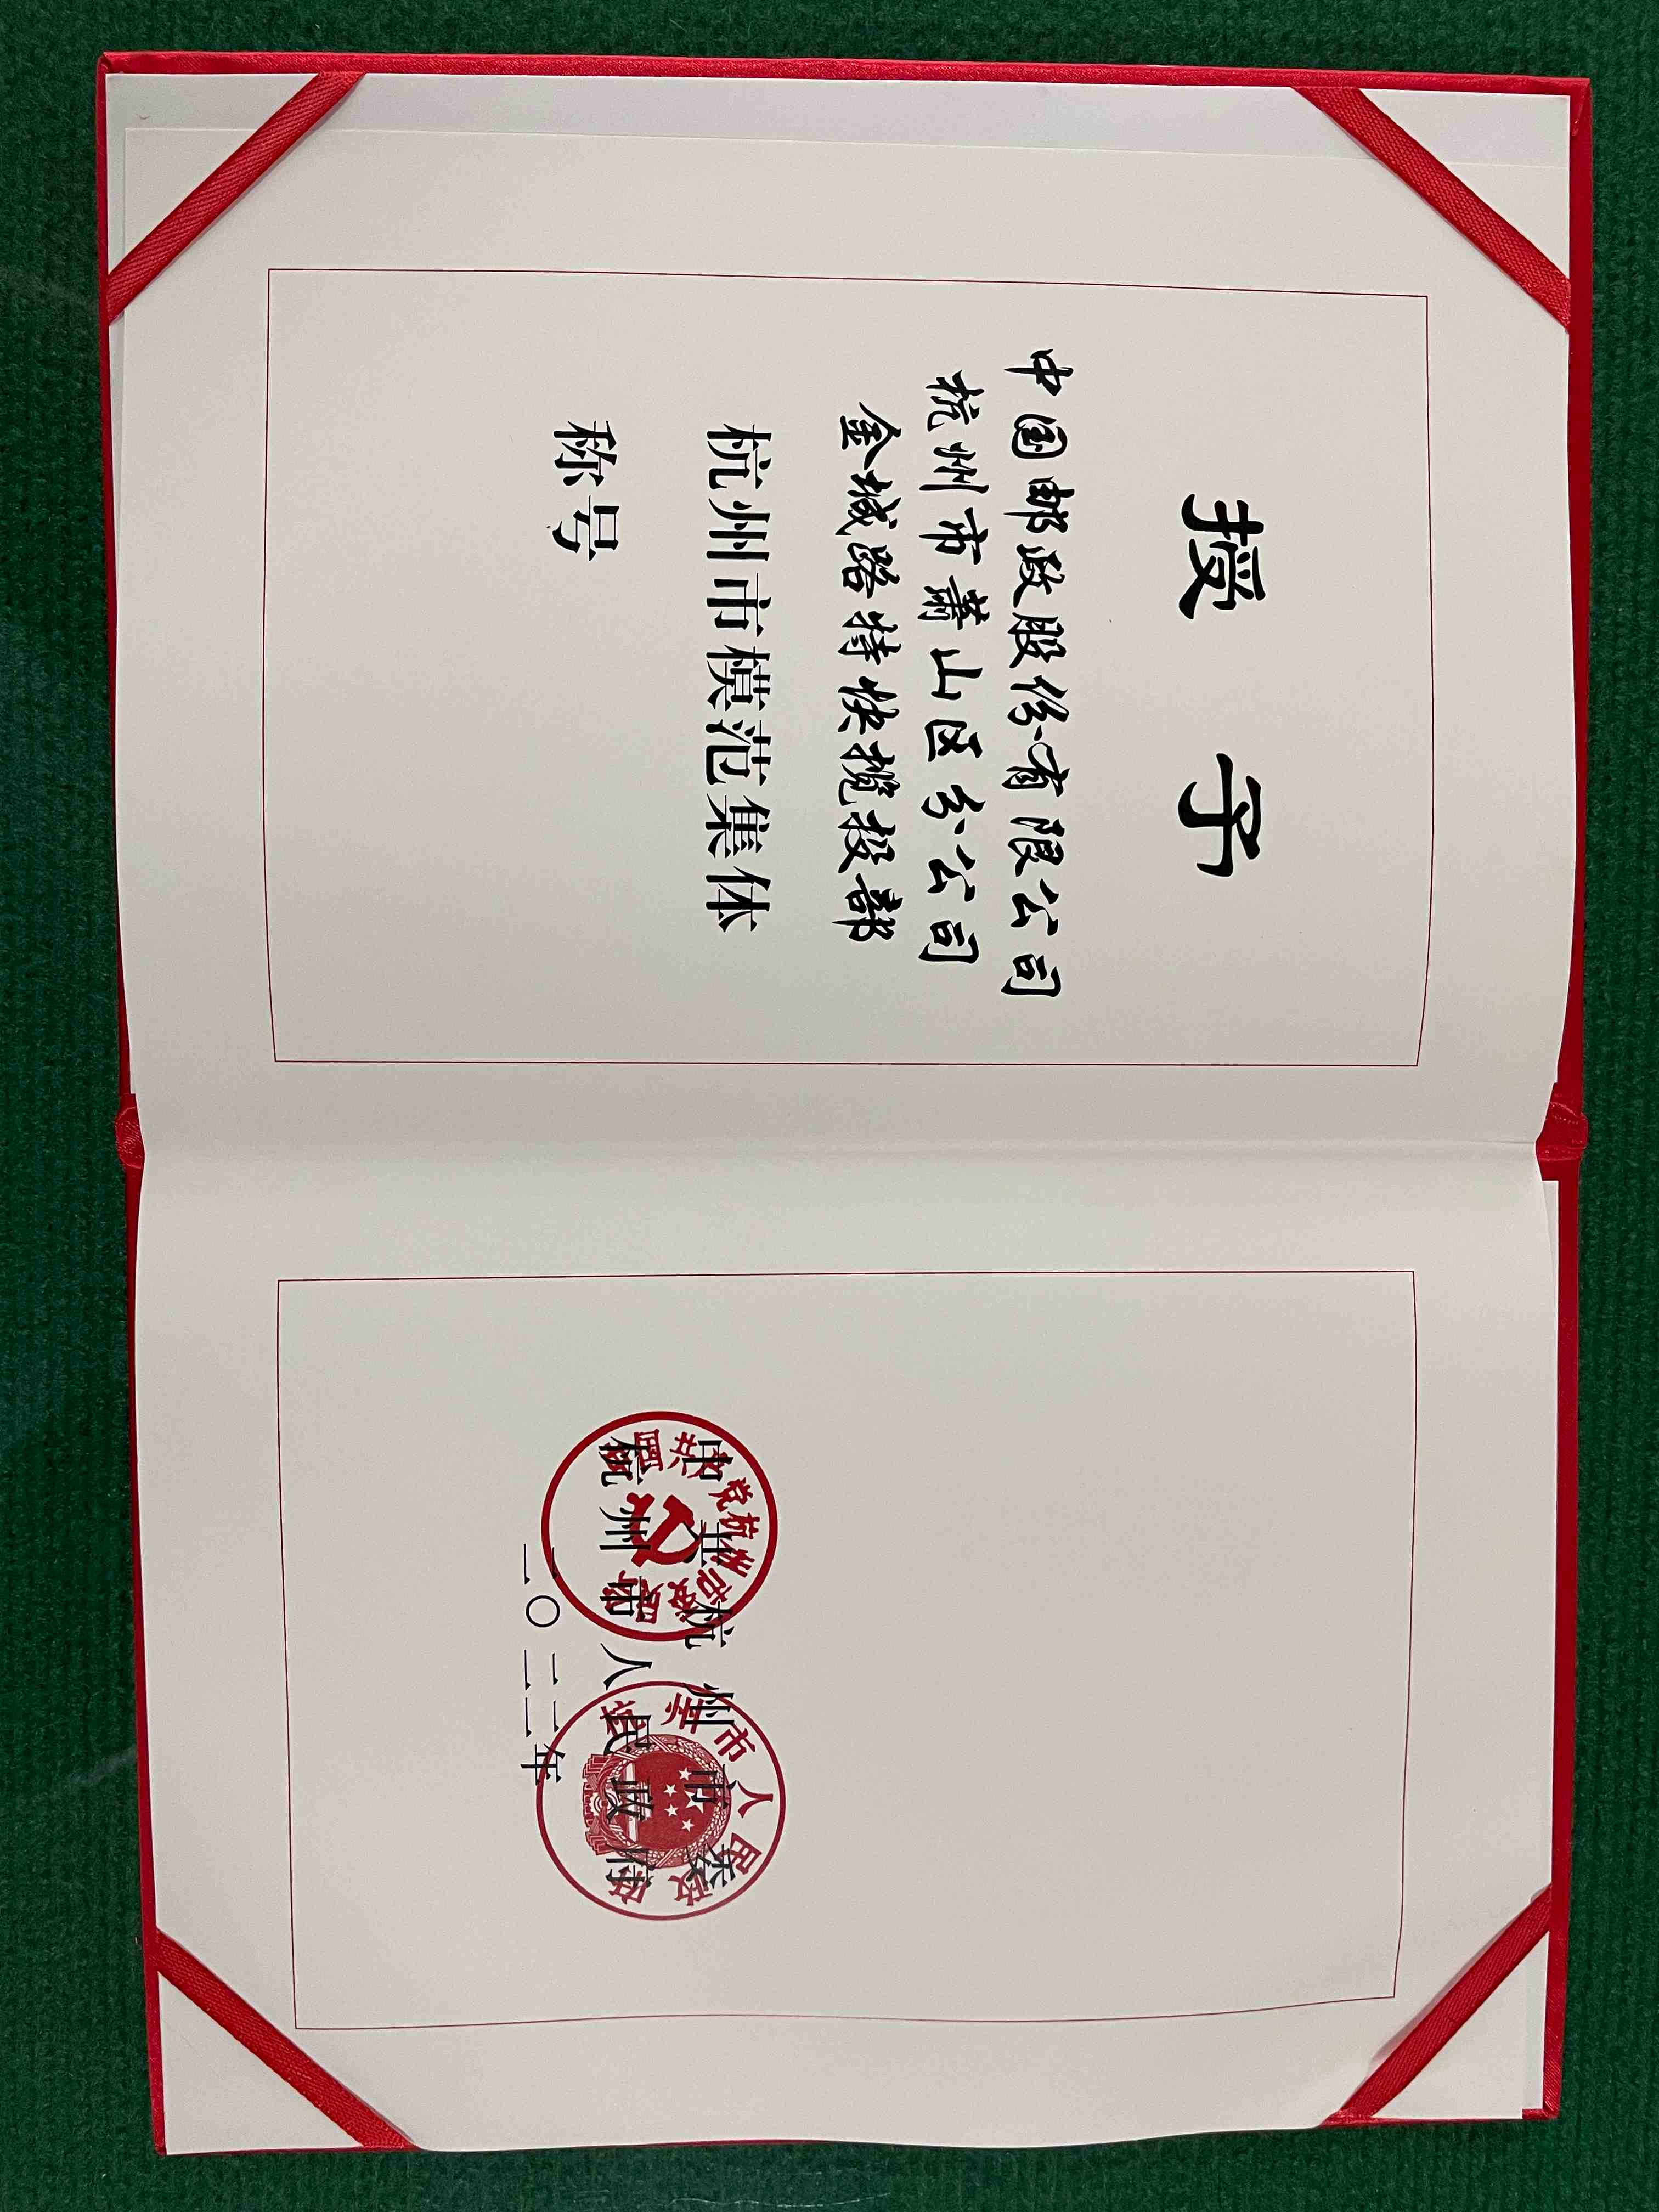 授予
中国邮政股份有限公司
杭州市萧山区分公司
金城路特快揽投部
杭州市模范集体
称号
中共杭州市委
杭州市人民政府
二〇二二年
中国共产党杭州市委员会
杭州市人民政府